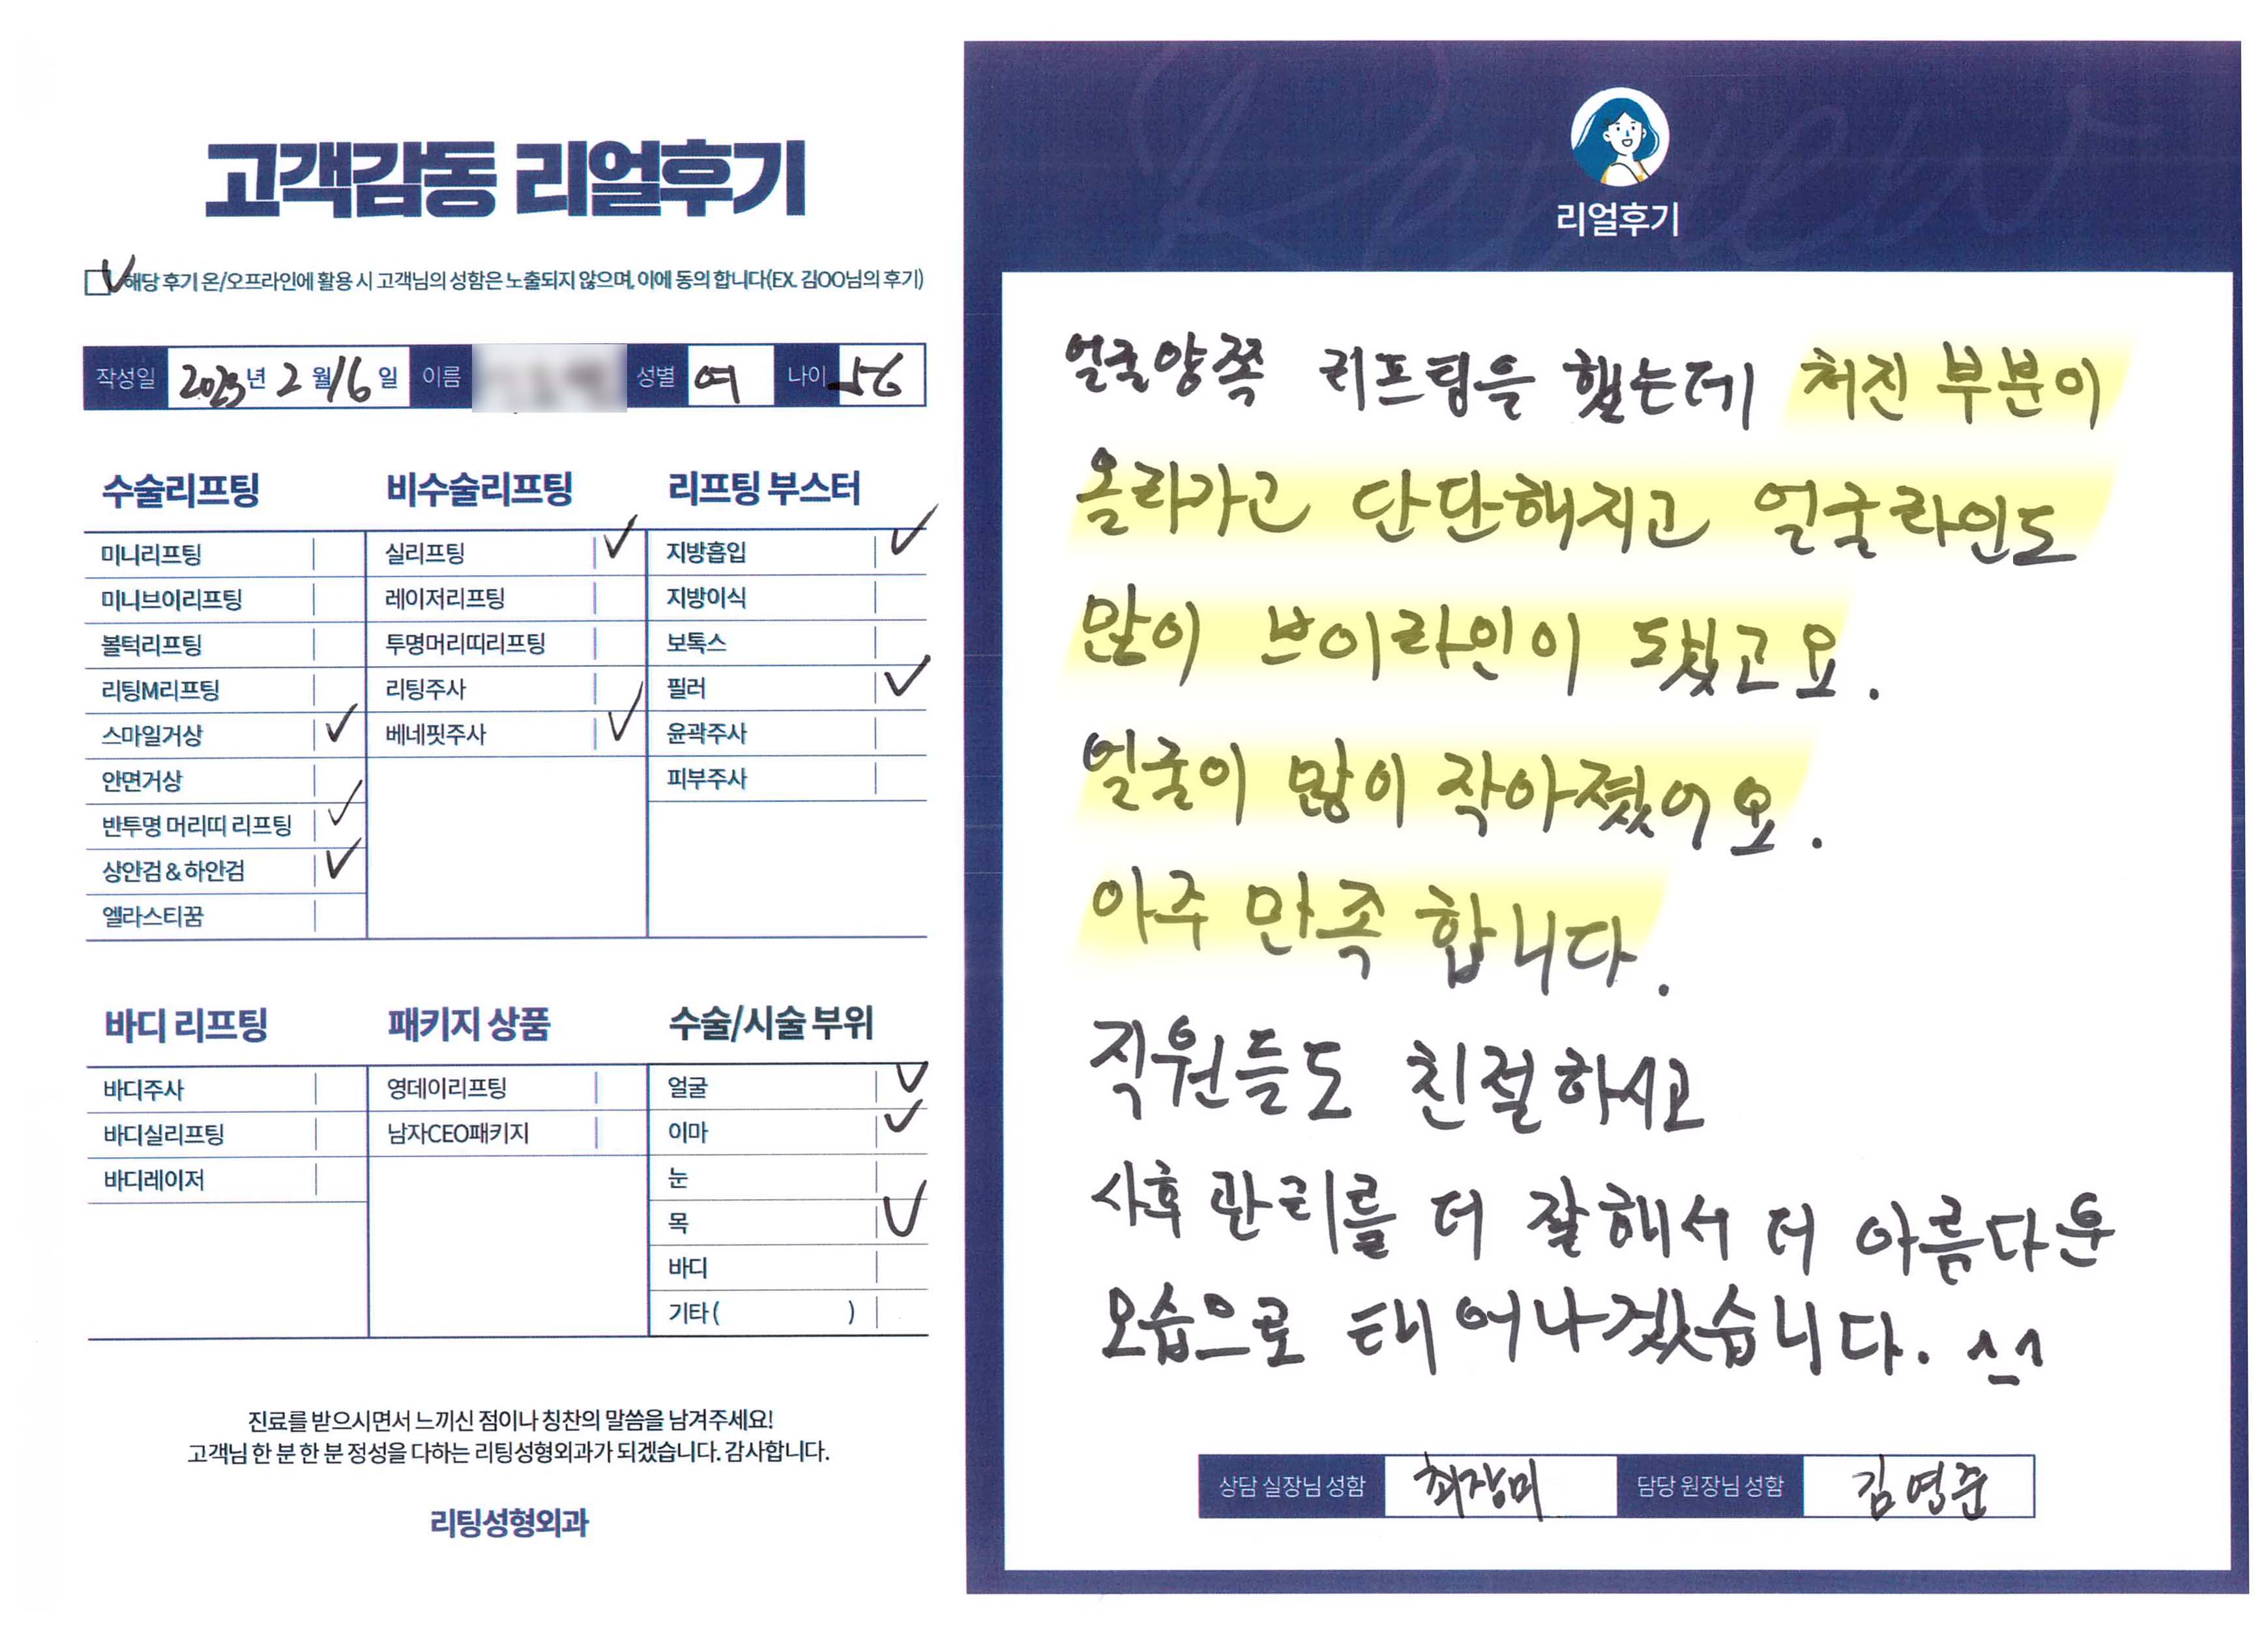 고객감동 리얼후기
해당 후기 온/오프라인에 활용 시 고객님의 성함은 노출되지 않으며, 이에 동의 합니다(EX. 김OO님의 후기)
작성일 2023년 2월 16일 이름 성별 여 나이 56
수술리프팅
미니리프팅
미니브이리프팅
볼턱리프팅
리팅M리프팅
스마일거상
안면거상
반투명 머리띠 리프팅
상안검 & 하안검
엘라스티꿈
비수술리프팅
실리프팅
레이저리프팅
투명머리띠리프팅
리팅주사
베네핏주사
리프팅 부스터
지방흡입
지방이식
보톡스
필러
윤곽주사
피부주사
바디 리프팅
바디주사
바디실리프팅
바디레이저
패키지 상품
영데이리프팅
남자CEO패키지
수술/시술 부위
얼굴
이마
눈
목
바디
기타 ( )
진료를 받으시면서 느끼신 점이나 칭찬의 말씀을 남겨주세요!
고객님 한 분 한 분 정성을 다하는 리팅성형외과가 되겠습니다. 감사합니다.
리팅성형외과
Review
리얼후기
얼굴양쪽 리프팅을 했는데 처진 부분이
올라가고 단단해지고 얼굴라인도
많이 브이라인이 됐고요.
얼굴이 많이 작아졌어요.
아주 만족 합니다.
직원들도 친절하시고
사후 관리를 더 잘해서 더 아름다운
모습으로 태어나겠습니다. ^_^
상담 실장님 성함 최장미 담당 원장님 성함 김영준